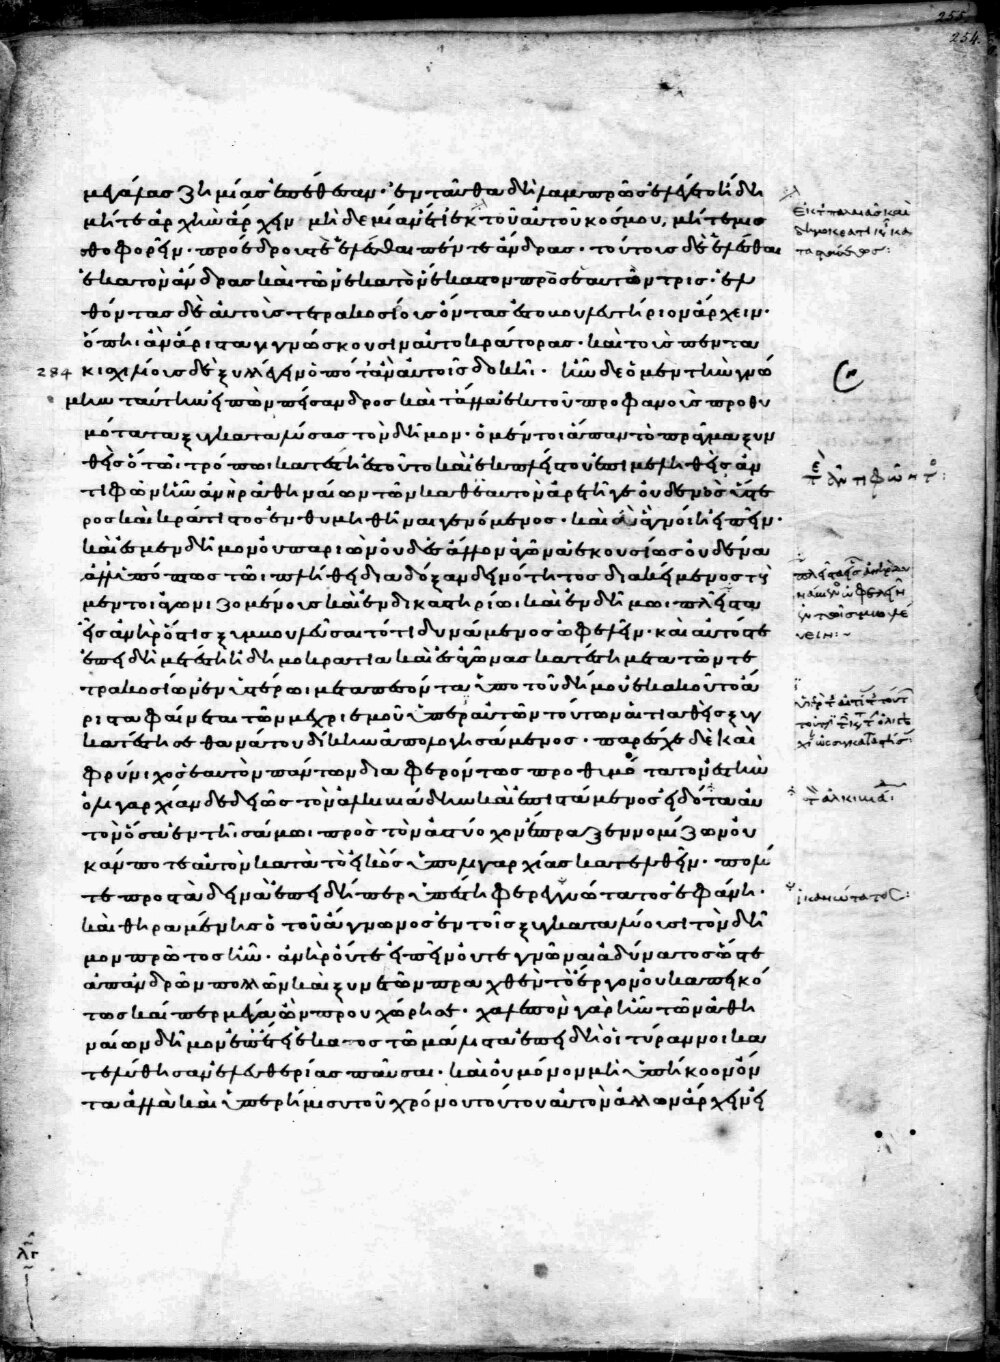 255
254
μεγάλας ζημίας ἐπέθεσαν· ἐνταῦθα δὴ λαμπρῶς ἐλέγετο ἤδη
μήτε ἀρχὴν ἄρχειν μηδεμίαν ἔτι ἐκ τοῦ αὐτοῦ κόσμου, μήτε μισ
θοφορεῖν· προέδρους τὲ ἑλέσθαι πέντε ἄνδρας· τούτους δὲ ἑλέσθαι
ἑκατὸν ἄνδρας καὶ τῶν ἑκατὸν ἕκαστον πρὸς ἑαυτὸν τρεῖς· ἐλ
θόντας δὲ αὐτοὺς τετρακοσίους ὄντας ἐς τὸ βουλευτήριον ἄρχειν·
ὅπηι ἂν ἄριστα γιγνώσκωσιν αὐτοκράτορας· καὶ τοὺς πεντα
284 κισχιλίους δὲ ξυλλέγειν ὁπόταν αὐτοῖς δοκῆι· ἦν δὲ ὁ μὲν τὴν γνώ
μην ταύτην εἰπὼν πείσανδρος καὶ τἆλλα ἐκ τοῦ προφανοῦς προθυ
μότατα ξυγκαταλύσας τὸν δῆμον· ὁ μέντοι ἅπαν τὸ πρᾶγμα ξυν
θεὶς ὅτωι τρόπωι κατέστη ἐς τοῦτο καὶ ἐκ πλείστου ἐπιμεληθεὶς ἀν
τιφῶν ἦν ἀνὴρ ἀθηναίων τῶν καθ' ἑαυτὸν ἀρετῆι τε οὐδενὸς ὕστε
ρος καὶ κράτιστος ἐνθυμηθῆναι γενόμενος· καὶ ἃ ἂν γνοίη εἰπεῖν·
καὶ ἐς μὲν δῆμον οὐ παριὼν οὐδ' ἐς ἄλλον ἀγῶνα ἑκουσίως οὐδένα
ἀλλ' ὑπόπτως τῶι πλήθει διὰ δόξαν δεινότητος διακείμενος τοὺς
μέντοι ἀγωνιζομένους καὶ ἐν δικαστηρίωι καὶ ἐν δήμωι πλεῖστα
εἷς ἀνὴρ ὅστις ξυμβουλεύσαιτό τι δυνάμενος ὠφελεῖν· καὶ αὐτός τε
ἐπειδὴ μετέστη ἡ δημοκρατία καὶ ἐς ἀγῶνας κατέστη μετὰ τῶν τε
τρακοσίων ἐν ὑστέρωι μεταπεσόντα ὑπὸ τοῦ δήμου ἐκακοῦτο ἄ
ριστα φαίνεται τῶν μέχρι ἐμοῦ ὑπὲρ αὐτῶν τούτων αἰτιαθεὶς ξυγ
κατέστησε θανάτου δίκην ἀπολογησάμενος· παρέσχε δὲ καὶ
φρύνιχος ἑαυτὸν πάντων διαφερόντως προθυμότατον ἐς τὴν
ὀλιγαρχίαν δεδειὼς τὸν ἀλκιβιάδην καὶ ἐπιστάμενος εἰδότα αὐ
τὸν ὅσα ἐν τῆι σάμωι πρὸς τὸν ἀστύοχον ἔπραξε νομίζων οὐ
κ ἄν ποτε αὐτὸν κατὰ τὸ εἰκὸς ὑπ' ὀλιγαρχίας κατελθεῖν· πολύ
τε πρὸς τὰ δεινὰ ἐπειδήπερ ὑπέστη φερεγγυώτατος ἐφάνη·
καὶ θηραμένης ὁ τοῦ ἅγνωνος ἐν τοῖς ξυγκαταλύουσι τὸν δῆ
μον πρῶτος ἦν· ἀνὴρ οὔτε εἰπεῖν οὔτε γνῶναι ἀδύνατος ὥστε
ἀπ' ἀνδρῶν πολλῶν καὶ ξυνετῶν πραχθὲν τὸ ἔργον οὐκ ἀπεικό
τως καίπερ μέγα ὂν προυχώρησε· χαλεπὸν γὰρ ἦν τῶν ἀθη
ναίων δῆμον ἐπ' ἔτει ἑκατοστῶ μάλιστα ἐπειδὴ οἱ τύραννοι κα
τελύθησαν ἐλευθερίας παῦσαι· καὶ οὐ μόνον μὴ ὑπήκοον ὄν
τα ἀλλὰ καὶ ὑπὲρ ἥμισυ τοῦ χρόνου τούτου αὐτὸν ἄλλων ἄρχειν εἰ
ἱκανώτατος: